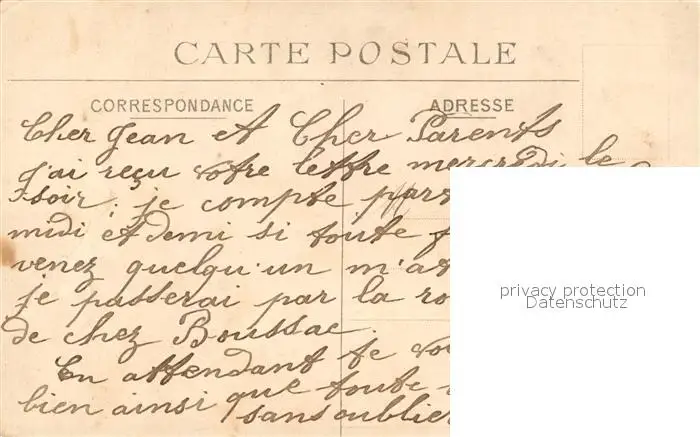 CARTE POSTALE
CORRESPONDANCE
ADRESSE
Cher Jean et Cher Parents
J'ai reçu votre lettre mercredi le
soir. je compte par
midi et demi si toute f
venez quelqu'un m'at
je passerai par la ro
de chez Boussac.
En attendant te vo
bien ainsi que toute
sans oublier
privacy protection
Datenschutz